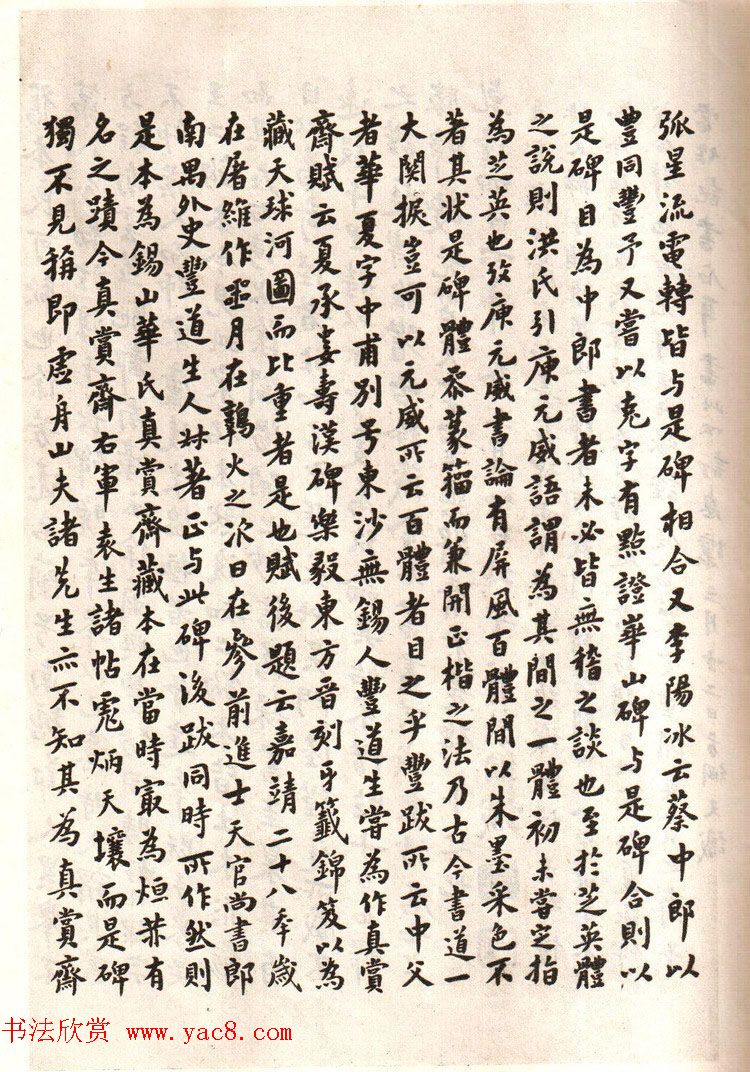 弧星流電轉皆与是碑相合又李陽冰云蔡中郎以
豐同豊予又嘗以羌字有點證華山碑与是碑合則以
是碑目為中郎書者未必皆無稽之談也至於芝英體
之說則洪氏引庾元威語謂為其間之一體初未嘗定指
為芝英也攷庾元威書論有屏風百體間以朱墨采色不
著其狀是碑體叅篆籀而兼開正楷之法乃古今書道一
大関捩豈可以元威所云百體者目之乎豐跋所云中父
者華夏字中甫別号東沙無錫人豐道生嘗為作真賞
齋賦云夏承婁壽漢碑樂毅東方晉刻牙籤錦笈以為
藏天球河圖而比重者是也賦後題云嘉靖二十八年歲
在屠維作噩月在鶉火之次日在參前進士天官尚書郎
南禺外史豐道生人叔著正与此碑後跋同時所作然則
是本為錫山華氏真賞齋藏本在當時㝡為烜赫有
名之蹟今真賞齋右軍袁生諸帖彪炳天壤而是碑
獨不見稱即虛舟山夫諸先生亦不知其為真賞齋
书法欣赏 www.yac8.com